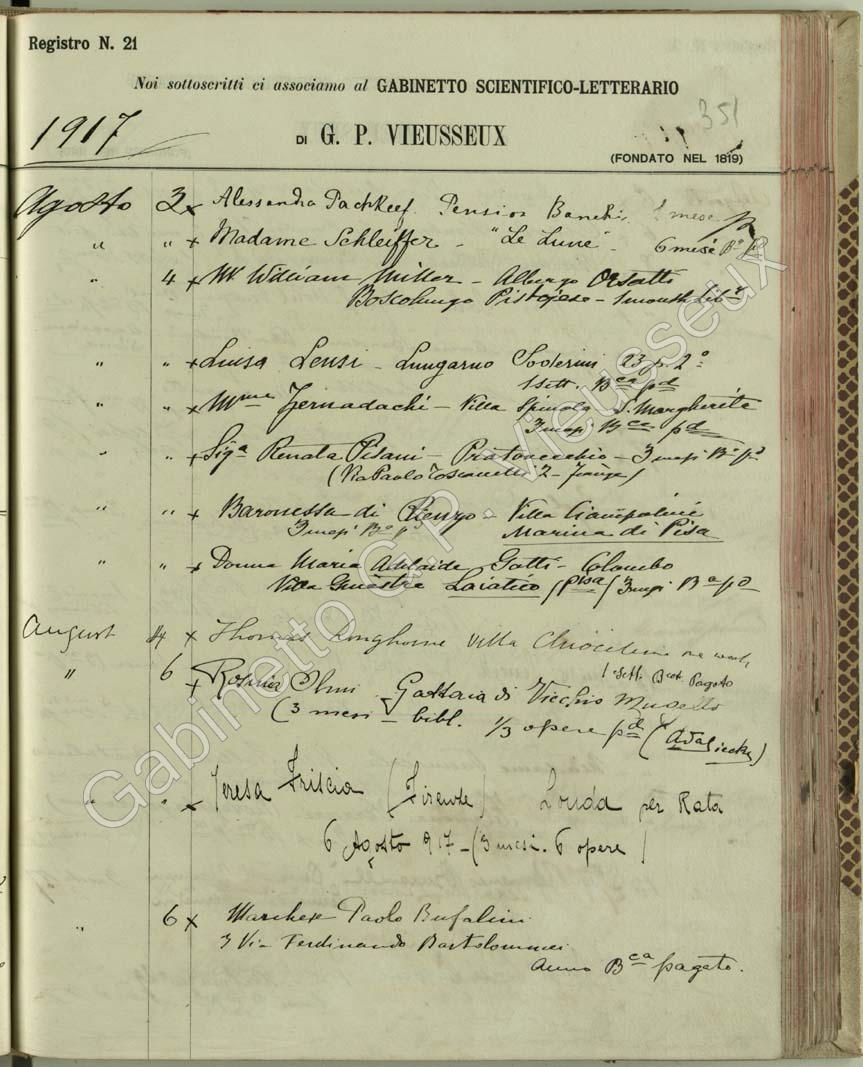 Registro N. 21
Noi sottoscritti ci associamo al GABINETTO SCIENTIFICO-LETTERARIO
351
1917
DI G. P. VIEUSSEUX
(FONDATO NEL 1819)
Agosto 3 x Alessandra Pension Banchi. mese
" " x Madame Schleiffer - "Le Lune" - 6 mesi
" 4 x Mr William Miller - Albergo Orsatti
Boscolungo Pistojese - 1 month
" " x Luisa Lensi - Lungarno Soderini 23 p. 2º
1 sett. Bca pd
" " x Mme - Villa Spinola S. Margherita
3 mesi Bca pd
" " x Siga Renata Pisani - Pratovecchio - 3 mesi
(Via Paolo Toscanelli 2 - )
" " x Baronessa di Rienzo - Villa Ciampolini
3 mesi Marina di Pisa
" " x Donna Maria Adelaide Gatti - Colombo
Villa Ginestre Laiatico (Pisa) 3 mesi Ba pd
August 4 x Thomas Villa one week
" 6 x Olmi Gattaia di Vicchio Mugello
1 sett. Pagato
(3 mesi - bibl. 1/3 opere pd
" " x Teresa Friscia (Firenze) Londa per Rata
6 Agosto 917 - (3 mesi. 6 opere)
" 6 x Marchese Paolo Bufalini
3 Via Ferdinando Bartolommei
Anno Bca pagato.
Gabinetto G.P. Vieusseux